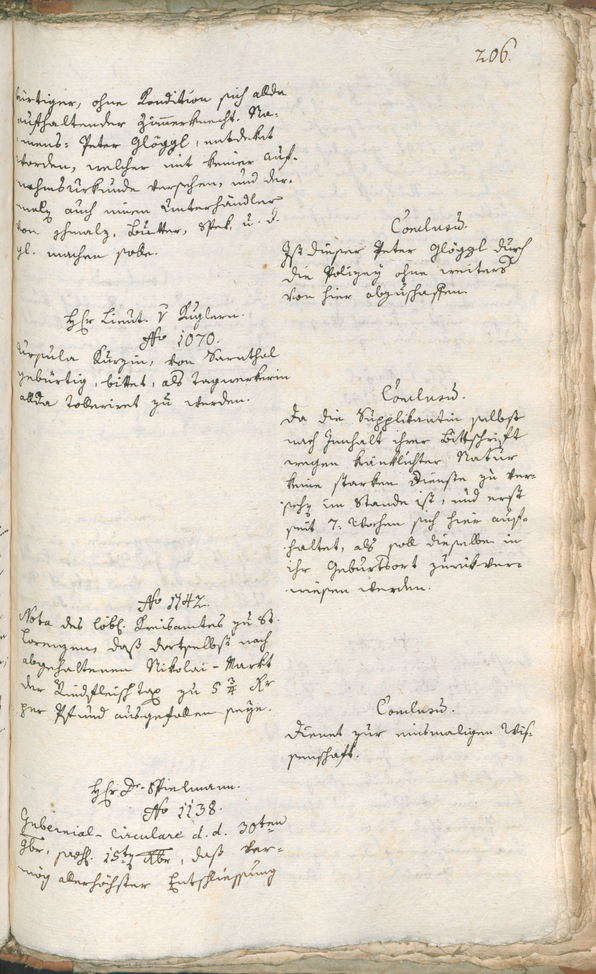 206.
bürtiger, ohne Kondition sich allda
aufhaltender Zimerknecht. Na-
mens: Peter Glöggl, entdeket
worden, welcher mit keiner Auf-
nahmsurkunde versehen, und der-
mals auch einen Unterhändler
von Schmalz, Butter, Spek, u. d.
gl. machen solle.
Conclusũ.
Ist dieser Peter Glöggl durch
die Polizey ohne weiters
von hier abzuschaffen
Hħr Lieut. v Kuglern.
No 1070.
Ursula Kurzin, von Sarnthal
gebürtig, bittet, als Tagwerkerin
allda tolerirt zu werden.
Conclusũ.
Da die Supplikantin selbst
nach Innhalt ihrer Bittschrift
wegen kränklichter Natur
keine starken Dienste zu ver-
sehen im Stande ist, und erst
seit 7. Wochen sich hier auf-
haltet, als soll dieselbe in
ihr Geburtsort zurükver-
wiesen werden.
No 1142.
Nota des löbl. Kreisamtes zu St.
Lorenzen, daß dortselbst nach
abgehaltenen Nikolai-Markt
der Rindfleisch Tax zu 5 3/4 Kr
per Pfund ausgefallen seye.
Conclusũ.
Dienet zur einsmaligen Wis-
senschaft.
Hħr Dr. Spielmann.
No 1138.
Gubernial-Circulare d. d. 30ten
9br, 15ten Xbr, daß ver-
mög allerhöchster Entschliessung